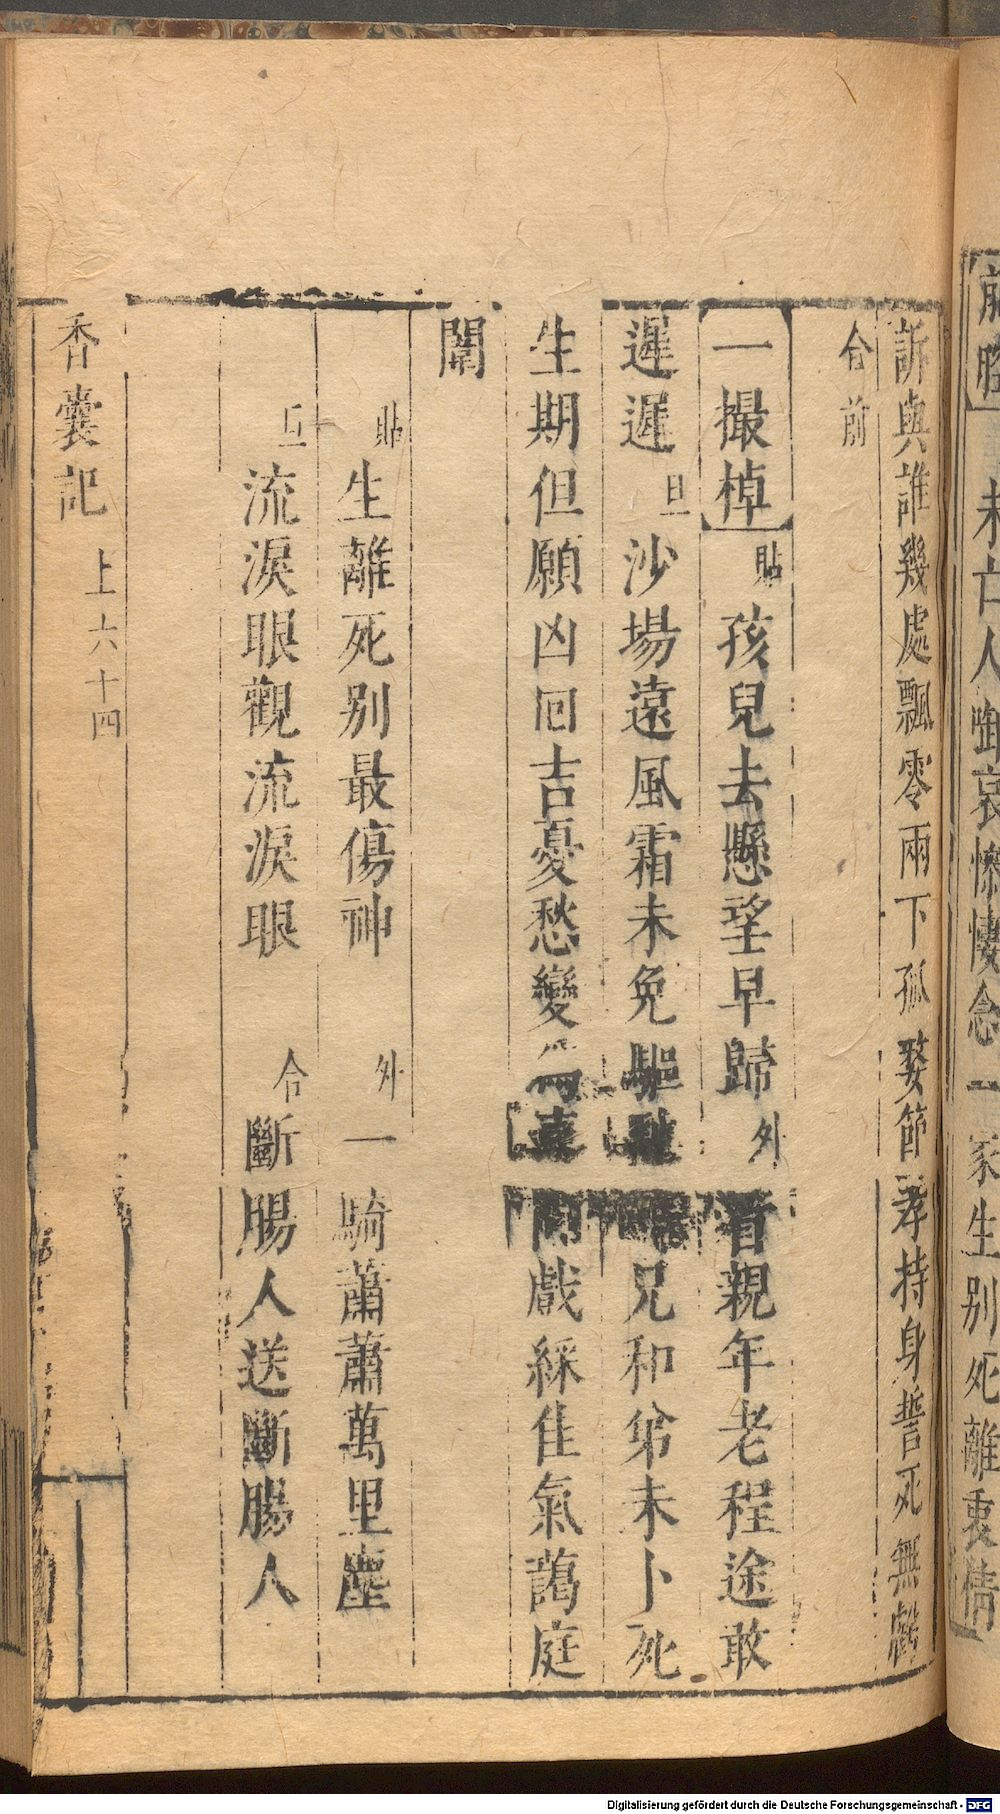 前腔
未亡人啣哀慘悽念一家生别死離衷情
訴與誰幾處飄零兩下孤嫠節孝持身誓死無虧
合前
一撮棹 貼 孩兒去懸望早歸 外 看親年老程途敢
遲遲 旦 沙場遠風霜未免驅 兄和弟未卜死
生期但願凶回吉憂愁變爲喜 同戲綵佳氣藹庭
闈
貼 生離死别最傷神 外 一騎蕭蕭萬里塵
丑 流淚眼觀流淚眼 合 斷腸人送斷腸人
香囊記 上六十四
Digitalisierung gefördert durch die Deutsche Forschungsgemeinschaft - DFG